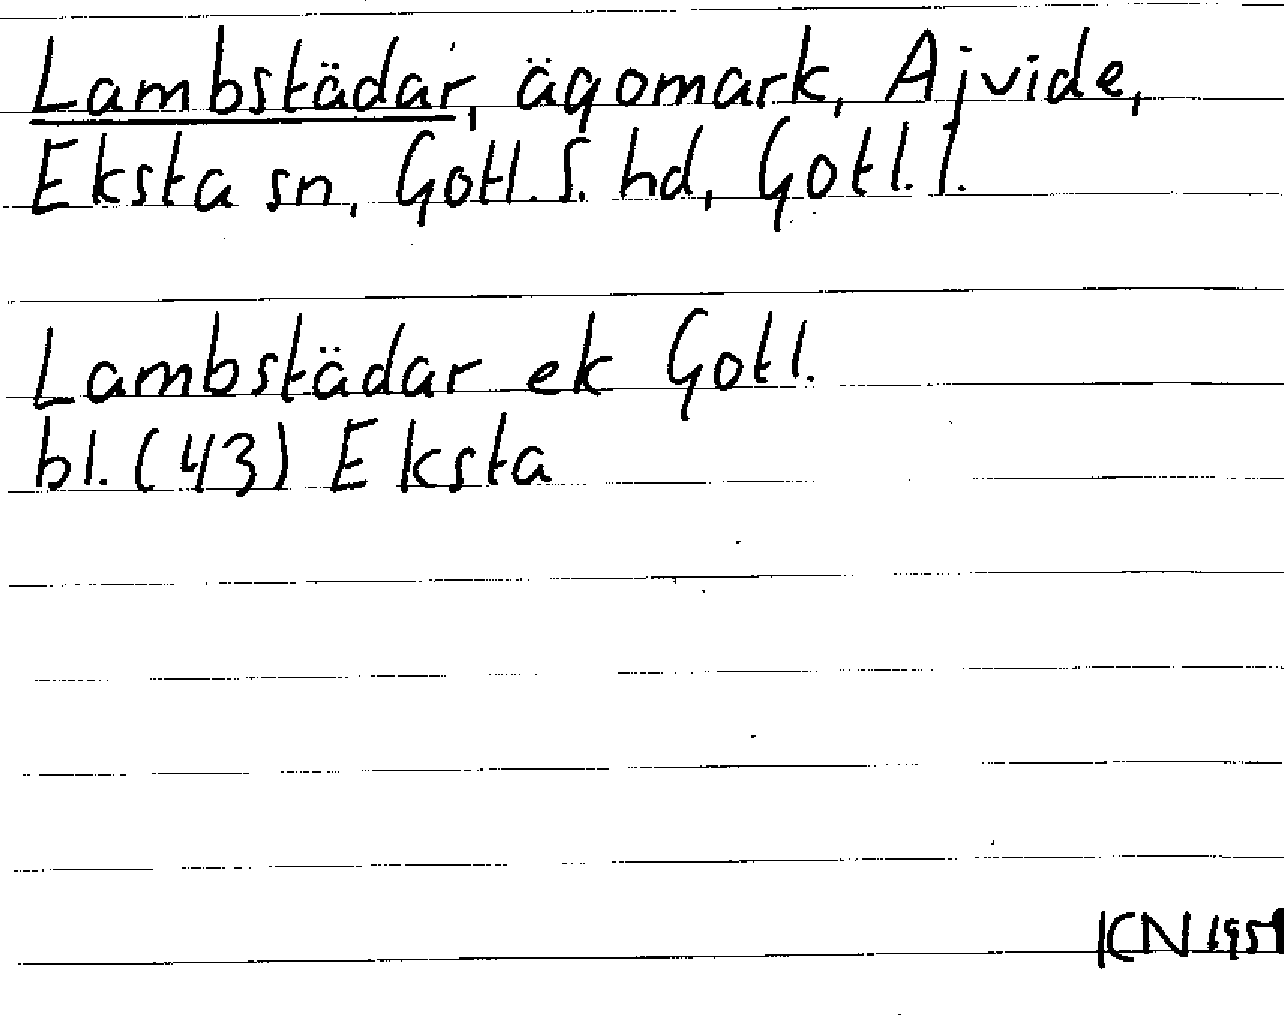 Lambstädar, ägomark, Ajvide,
Eksta sn, Gotl. S. hd, Gotl. l.
Lambstädar ek Gotl.
bl. (43) Eksta